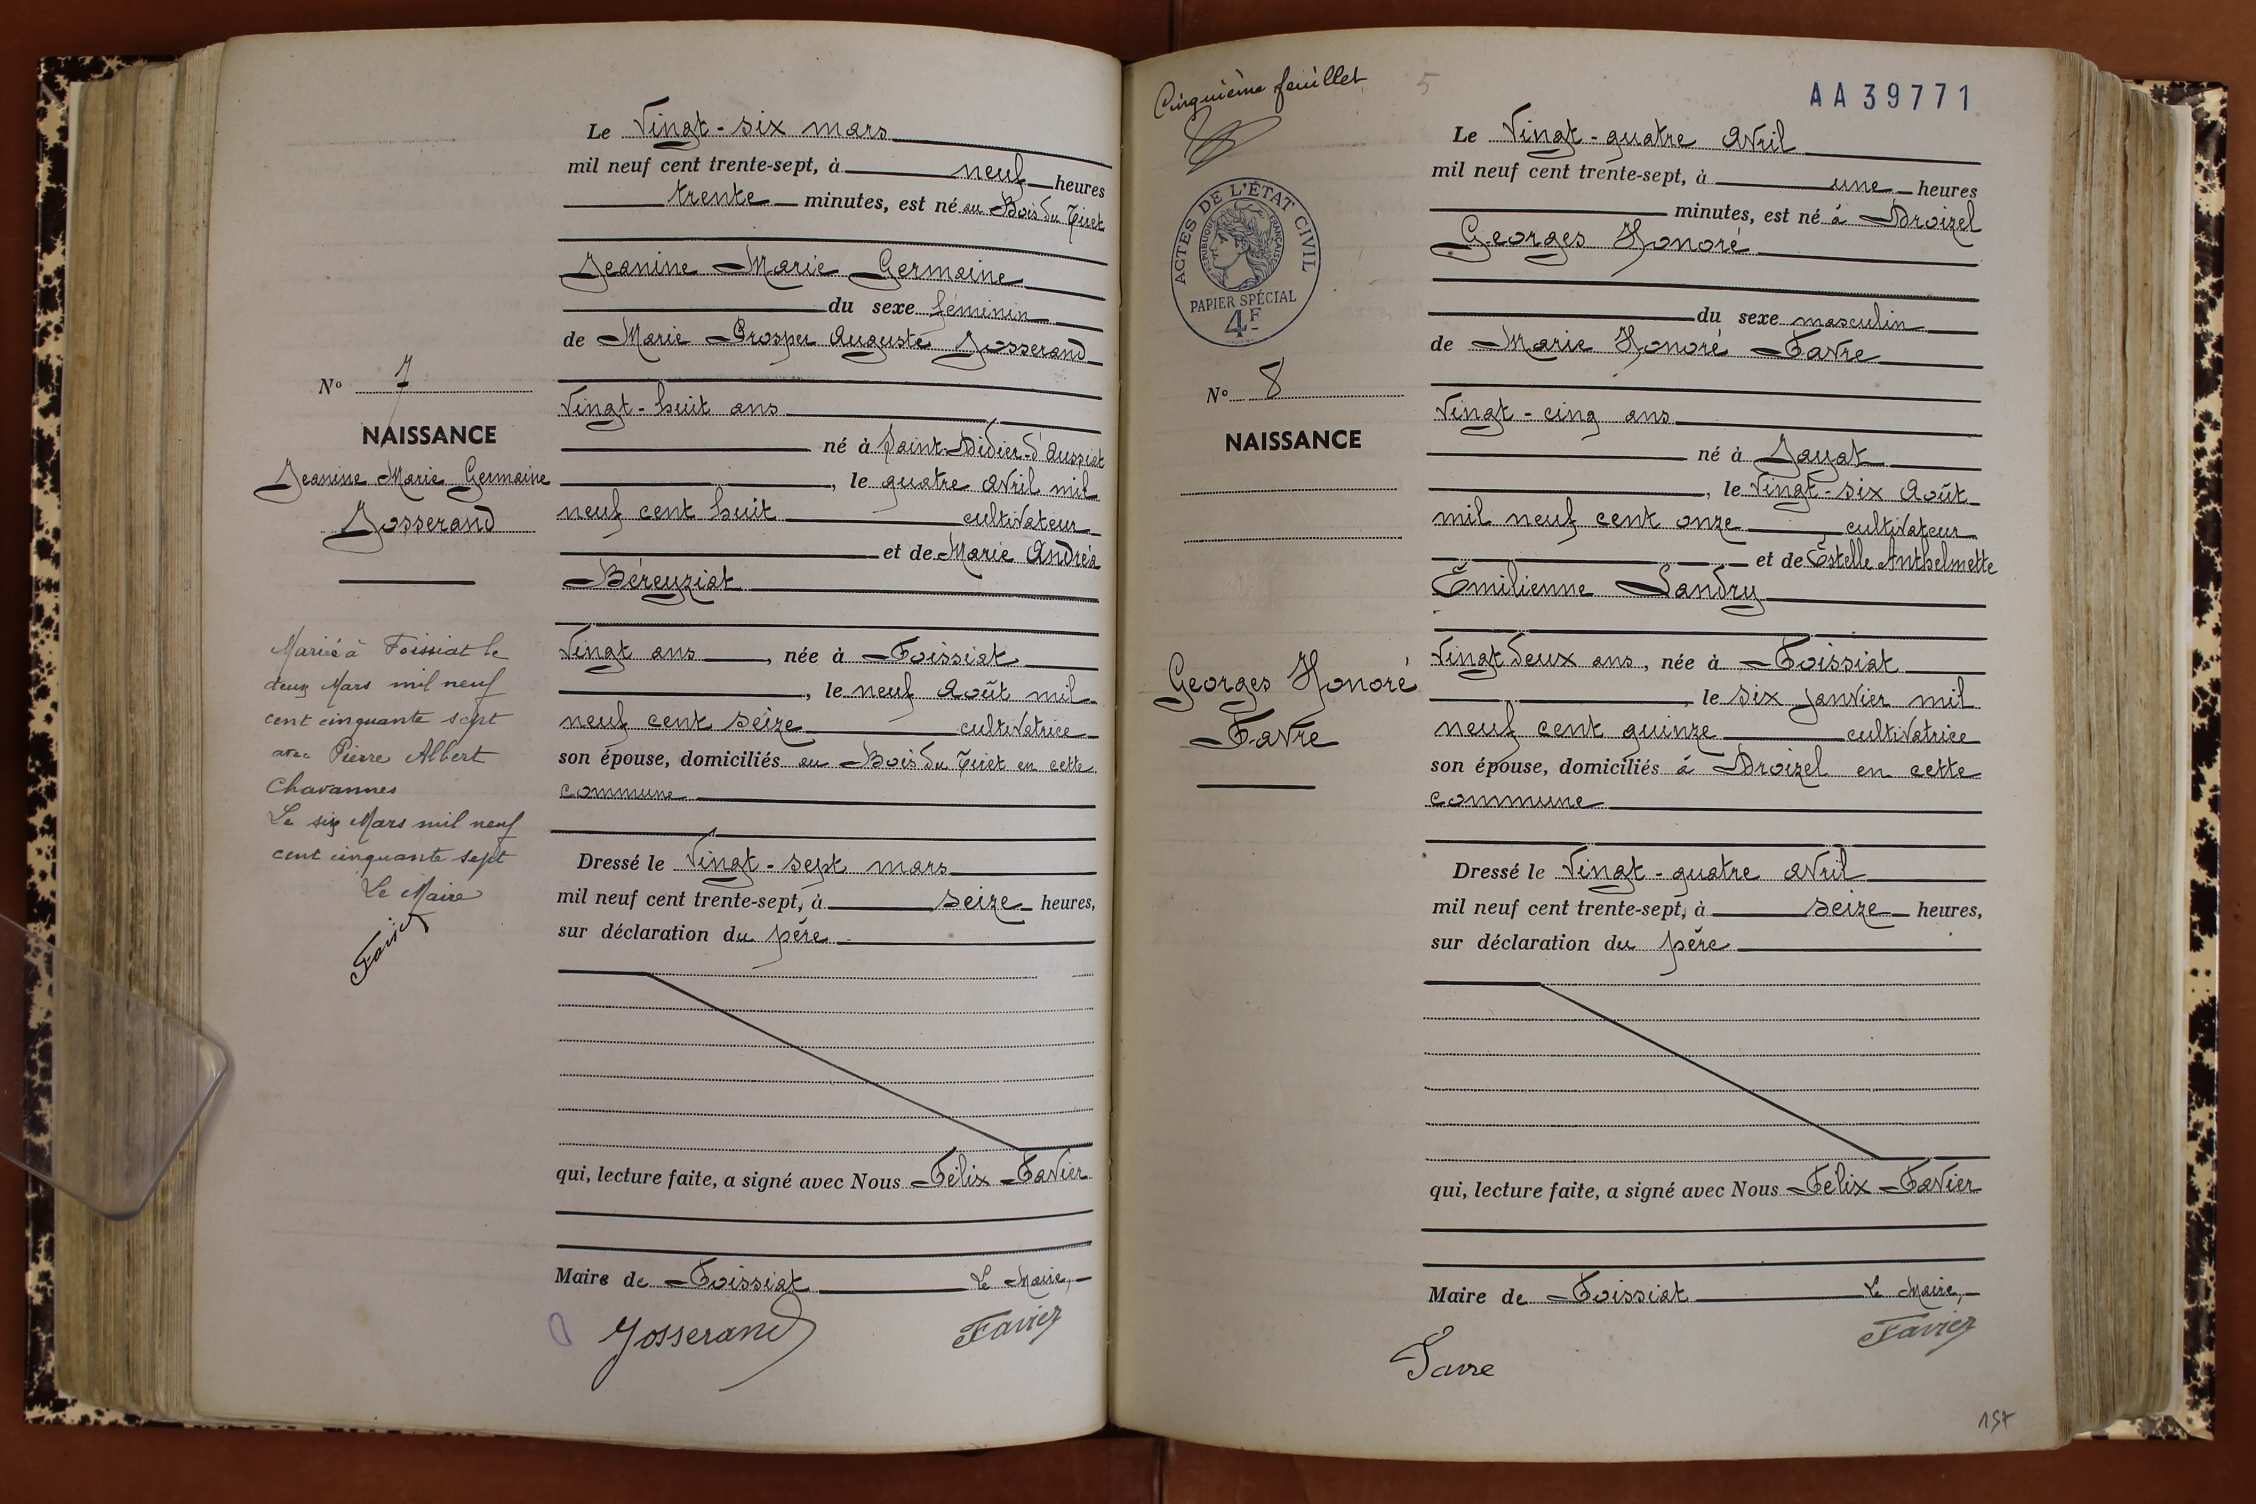 Le Vingt-six mars
mil neuf cent trente-sept, à neuf heures
trente minutes, est né au Bois du Tiret
Jeanine Marie Germaine
du sexe féminin
de Marie Prosper Auguste Josserand
Vingt-huit ans
né à Saint-Didier-d'Aussiat
, le quatre avril mil
neuf cent huit cultivateur
et de Marie Andréa
Béreyziat
Vingt ans, née à Foissiat
, le neuf Août mil
neuf cent seize cultivatrice
son épouse, domiciliés au Bois du Tiret en cette
commune
Dressé le Vingt-sept mars
mil neuf cent trente-sept, à seize heures,
sur déclaration du père
qui, lecture faite, a signé avec Nous Félix Favier
Maire de Foissiat Le Maire,
Josserand Favier
No 7
NAISSANCE
Jeanine Marie Germaine
Josserand
Mariée à Foissiat le
deux Mars mil neuf
cent cinquante sept
avec Pierre Albert
Chavannes
Le six Mars mil neuf
cent cinquante sept
Le Maire
Cinquième feuillet
5
AA39771
ACTES DE L'ÉTAT CIVIL
RÉPUBLIQUE FRANÇAISE
PAPIER SPÉCIAL
4F
Le Vingt-quatre Avril
mil neuf cent trente-sept, à une heures
minutes, est né à Droizel
Georges Honoré
du sexe masculin
de Marie Honoré Favre
Vingt-cinq ans
né à Jayat
, le Vingt-six Août
mil neuf cent onze cultivateur
et de Estelle Anthelmette
Émilienne Landry
Vingt deux ans, née à Foissiat
, le six janvier mil
neuf cent quinze cultivatrice
son épouse, domiciliés à Droizel en cette
commune
Dressé le Vingt-quatre avril
mil neuf cent trente-sept, à seize heures,
sur déclaration du père
qui, lecture faite, a signé avec Nous Félix Favier
Maire de Foissiat Le Maire,
Favre Favier
No 8
NAISSANCE
Georges Honoré
Favre
157